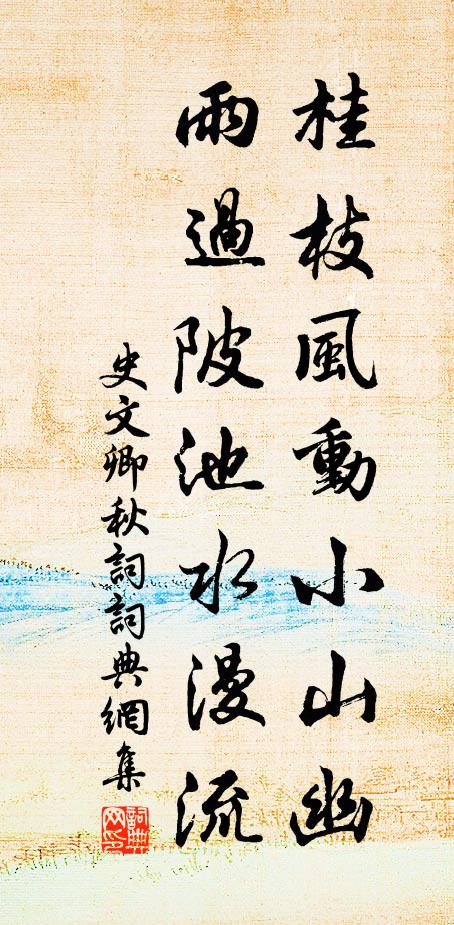 桂枝風動小山幽
雨過陂池水漫流
史文卿秋詞詞典網集